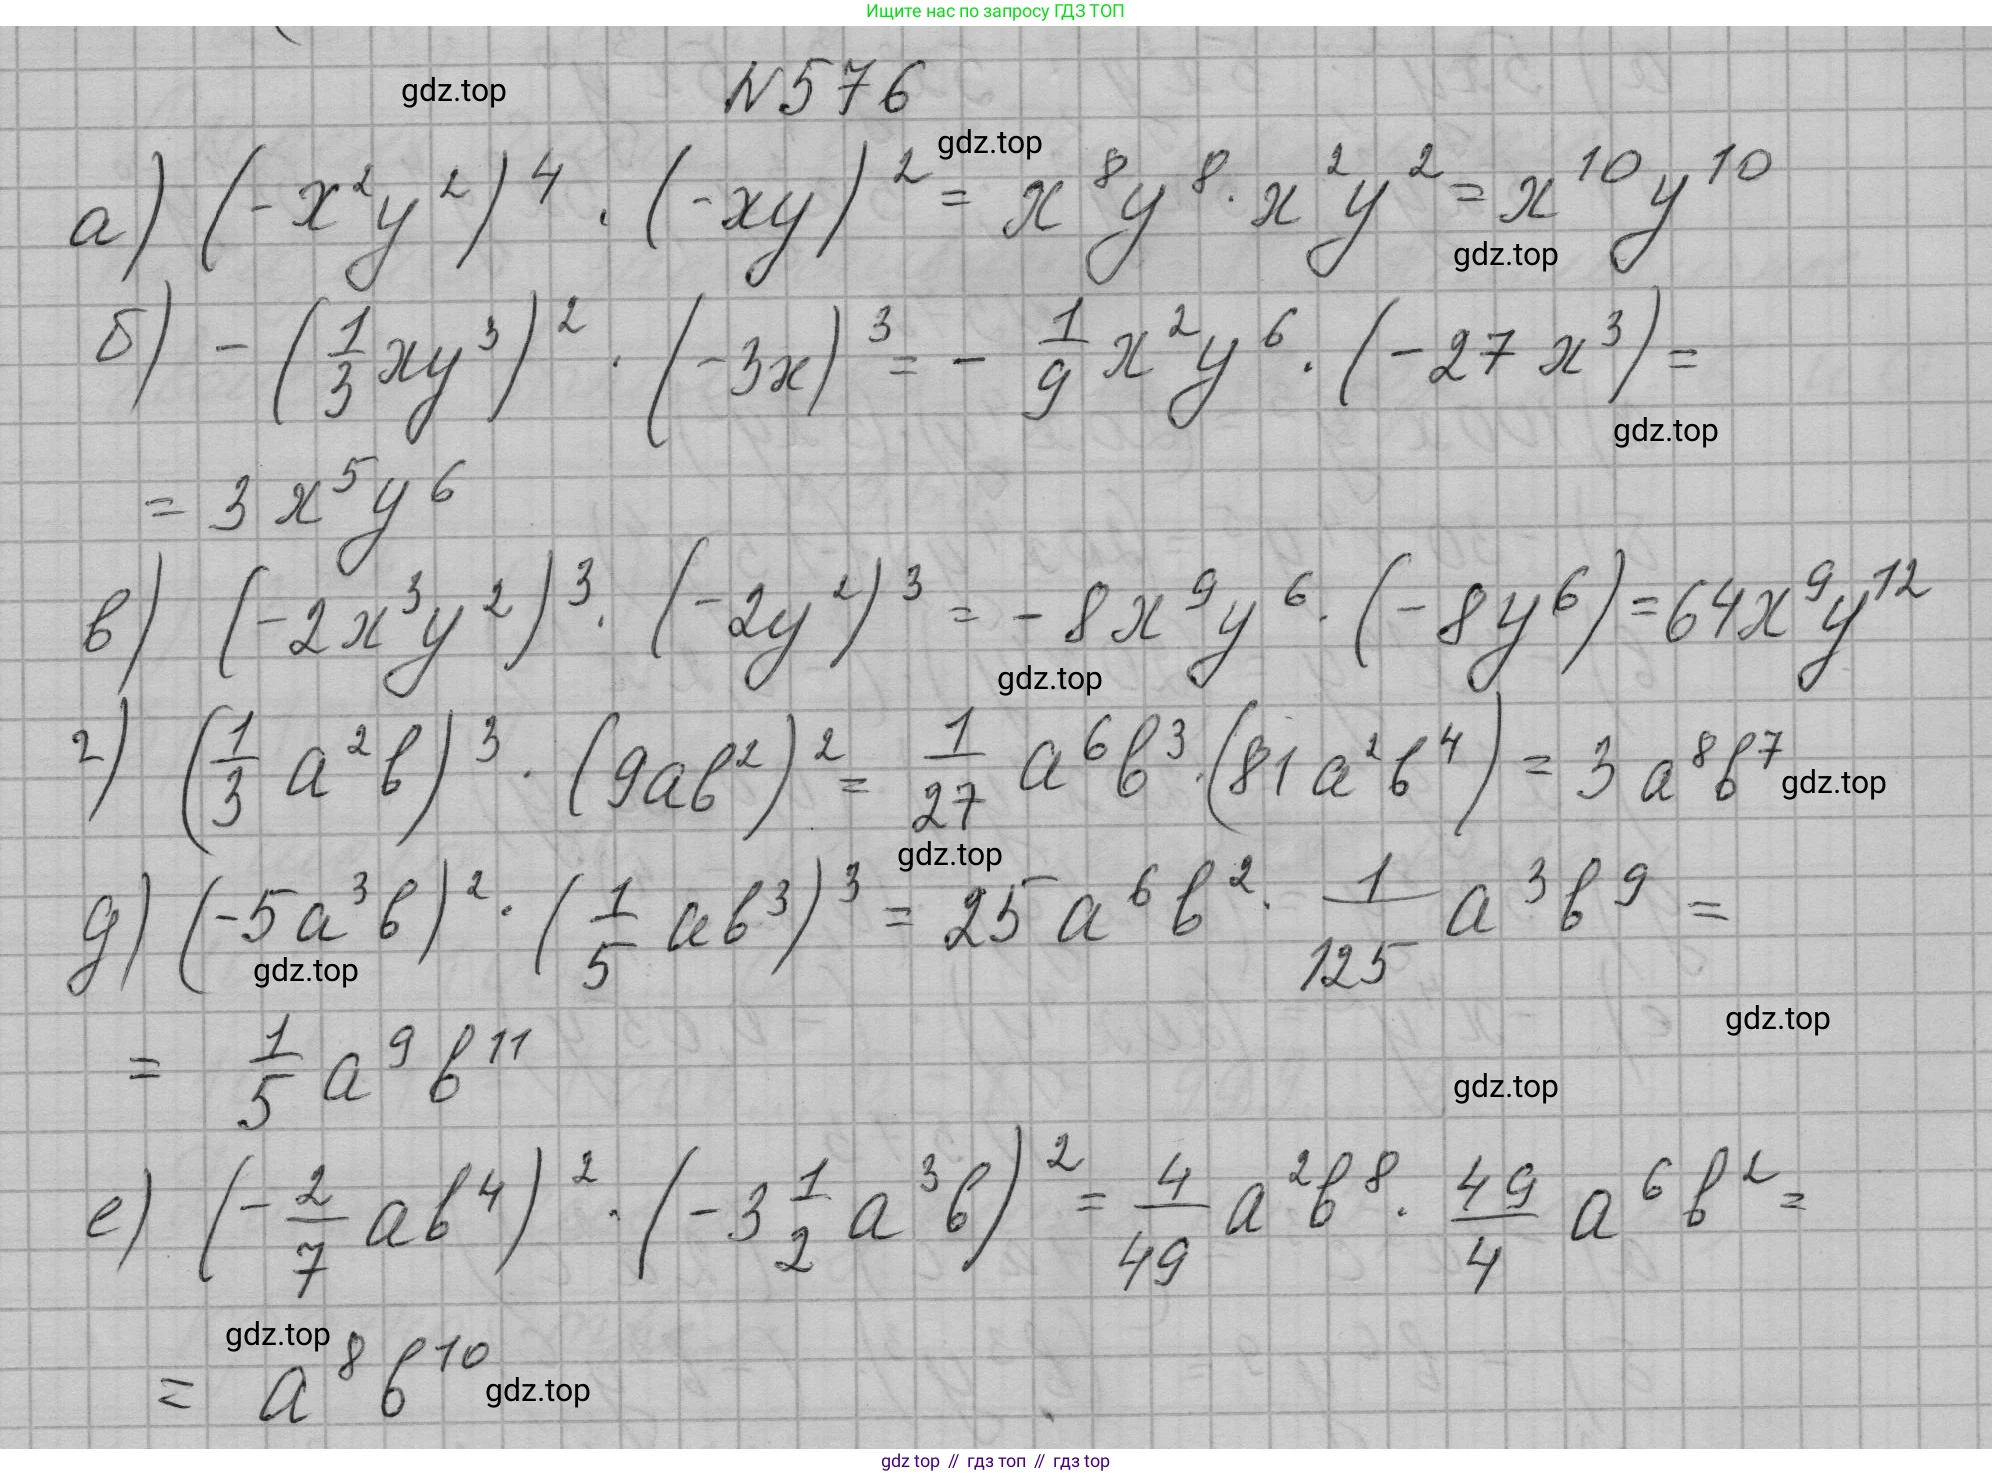 Ищите нас по запросу ГДЗ ТОП
№576
gdz.top
gdz.top
а) (-x²y²)⁴ · (-xy)² = x⁸y⁸ · x²y² = x¹⁰y¹⁰
gdz.top
б) -(1/3 xy³)² · (-3x)³ = - 1/9 x²y⁶ · (-27x³) =
gdz.top
= 3x⁵y⁶
в) (-2x³y²)³ · (-2y²)³ = -8x⁹y⁶ · (-8y⁶) = 64x⁹y¹²
gdz.top
г) (1/3 a²b)³ · (9ab²)² = 1/27 a⁶b³ · (81a²b⁴) = 3a⁸b⁷
gdz.top
gdz.top
д) (-5a³b)² · (1/5 ab³)³ = 25a⁶b² · 1/125 a³b⁹ =
gdz.top
gdz.top
= 1/5 a⁹b¹¹
gdz.top
е) (-2/7 ab⁴)² · (-3 1/2 a³b)² = 4/49 a²b⁸ · 49/4 a⁶b² =
gdz.top
= a⁸b¹⁰
gdz.top
gdz top // гдз топ // гдз top